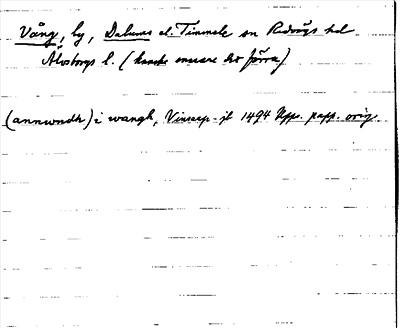 Vång, by, Dalums el. Timmele sn Redvägs hd
Älvsborgs l. (kanske snarare det förra)
(annwndh) i wangh, Vinsarp-jb 1494 Upps. papp. orig.